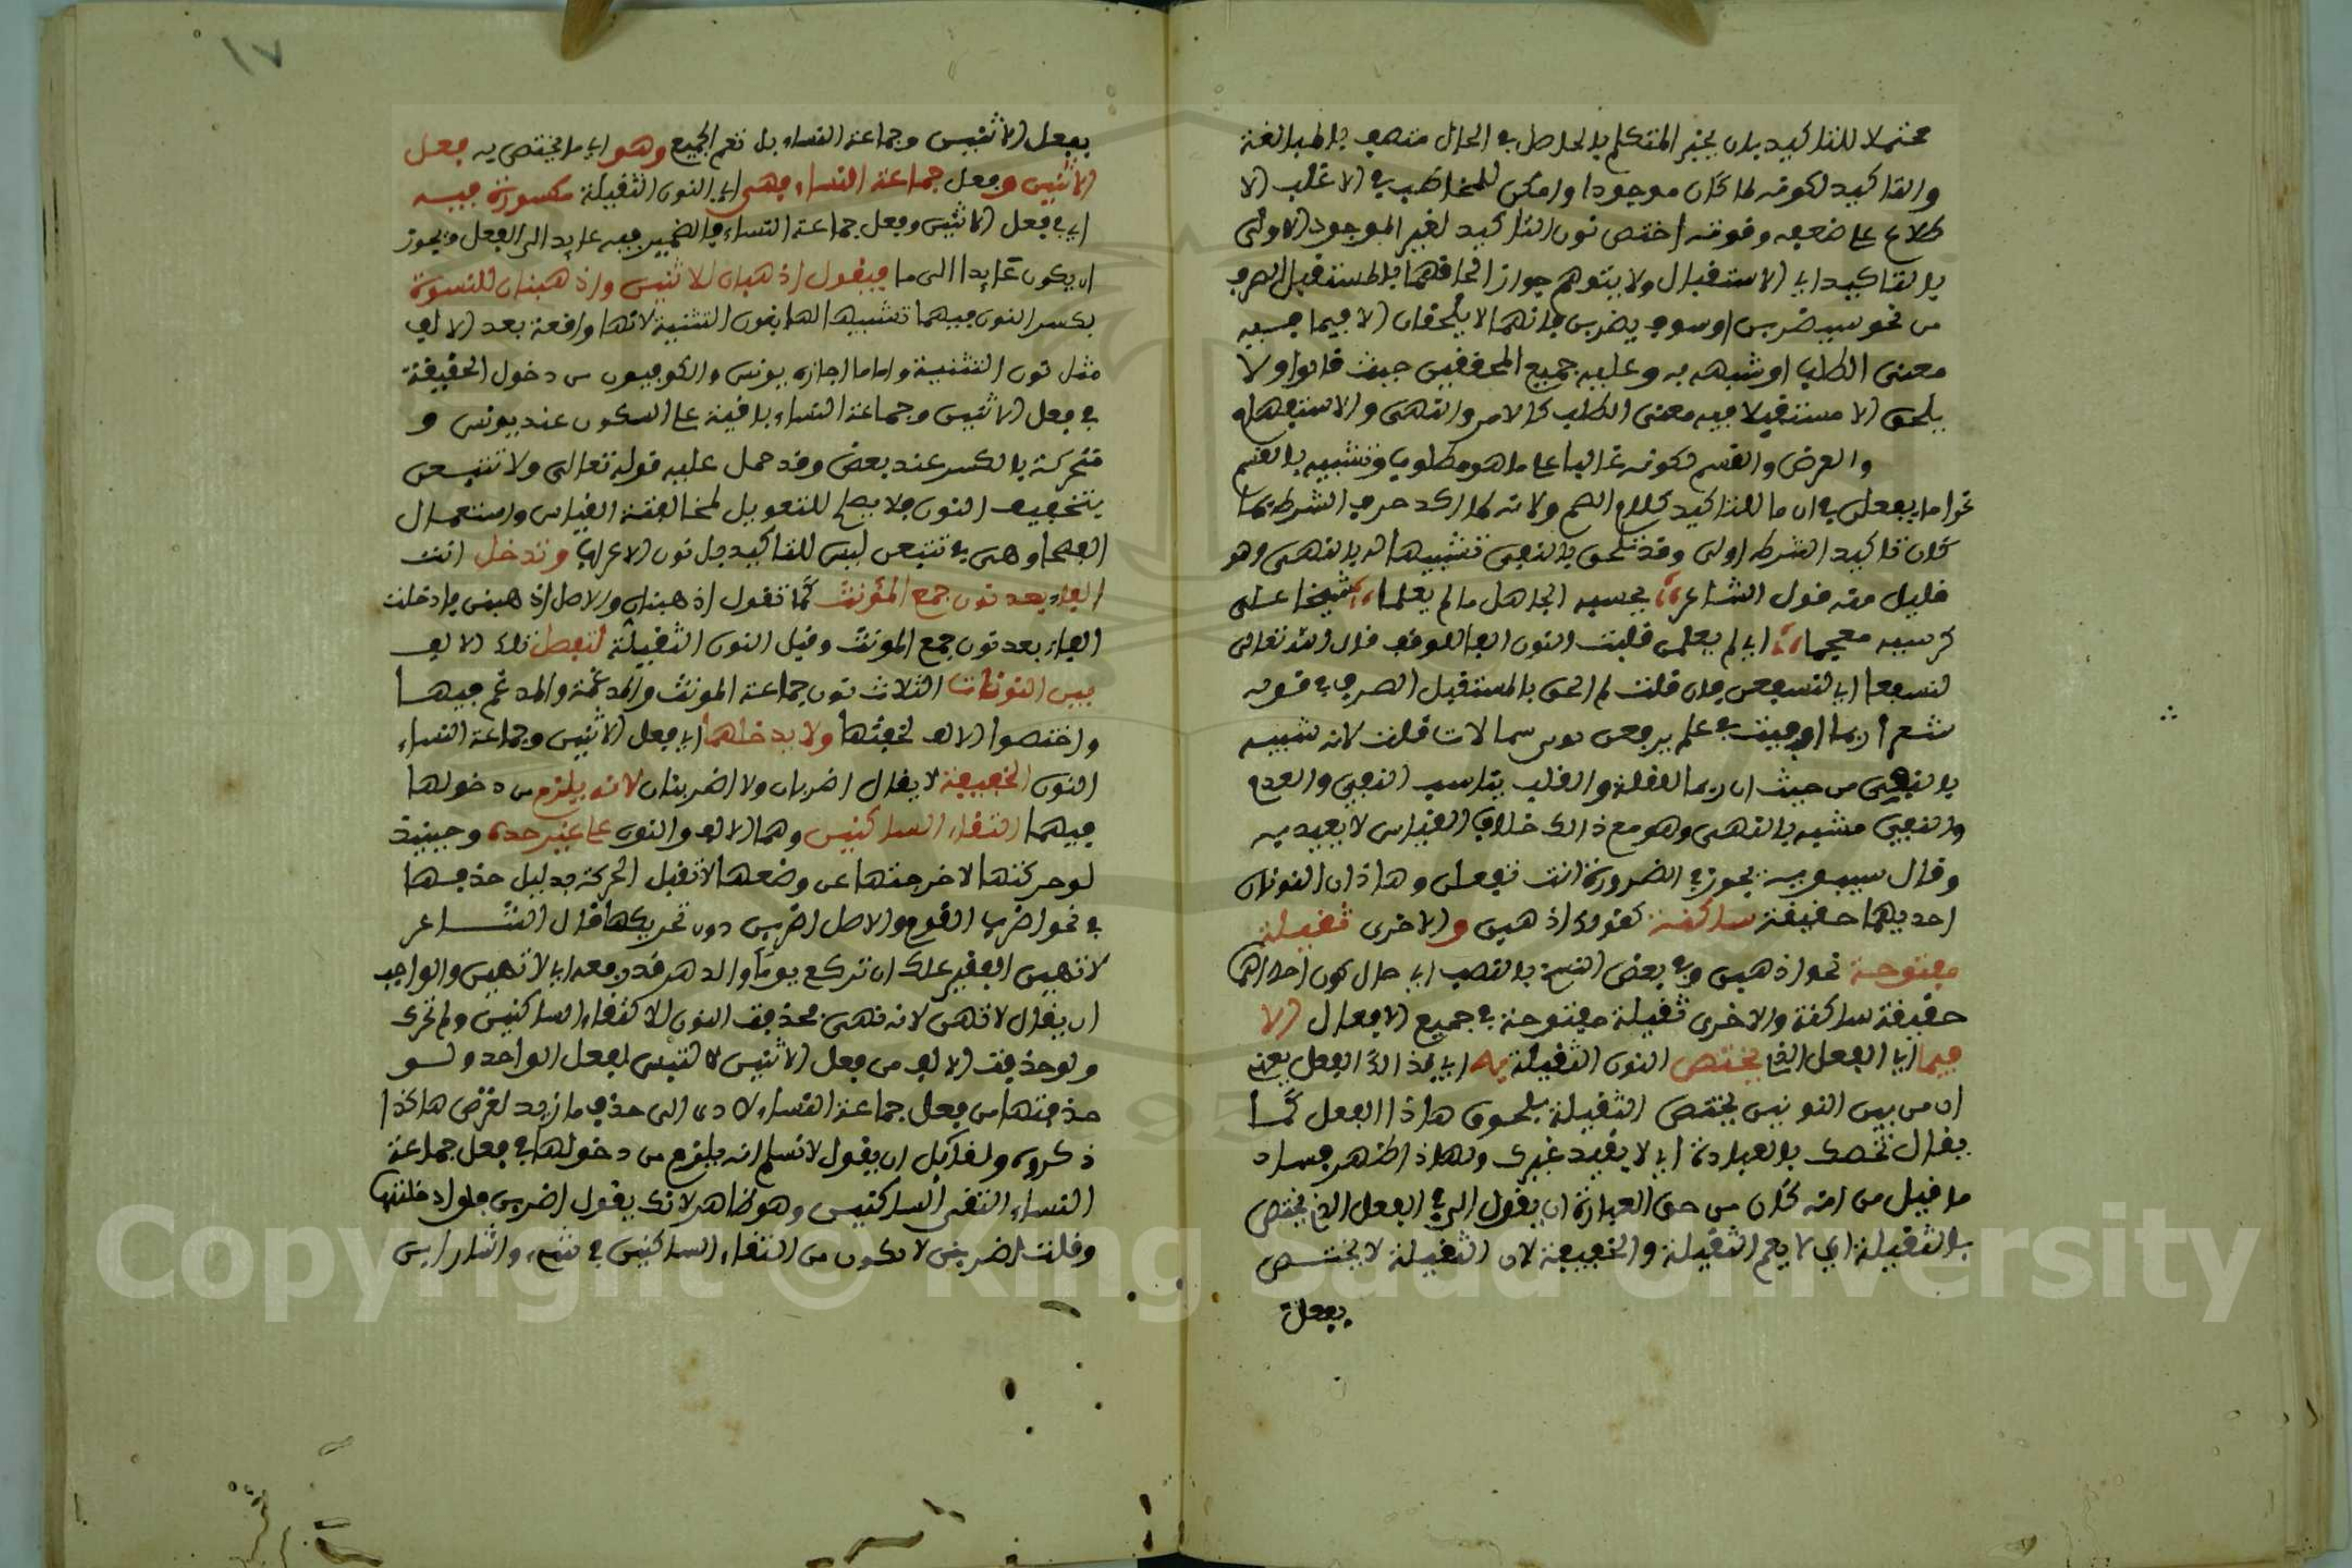 محتملا للتاكيد بان يخبر المتكلم بالحاصل في الحال متصف بالمبالغة
والتاكيد لكونه لما كان موجودا وامكن للمخاطب في الاغلب الا
طلاع على ضعفه وقوته اختص نون التاكيد لغير الموجود الاولى
بالتاكيد اي الاستقبال ولا يتوهم جواز الحاقهما بالمستقبل الصرف
من نحو سيضربن او سوف يضربن فانهما لا يلحقان الا فيما فيه
معنى الطلب او شبهه به وعليه جميع المحققين حيث قالوا ولا
يلحق الا مستقبلا فيه معنى الطلب كالامر والنهي والاستفهام
والعرض والقسم لكونه غالبا على ما هو مطلوب وتشبيه بالقسم
نحو اما يفعلن في ان ما للتاكيد كلام القسم ولانه لما اكد حرف الشرط بما
كان تاكيد الشرط اولى وقد تلحق بالنفي تشبيها له بالنهي وهو
قليل منه قول الشاعر يحسبه الجاهل ما لم يعلما شيخا على
كرسيه معمما اي لم يعلمن قلبت النون الفا للوقف قال الله تعالى
لنسفعا اي لنسفعن فان قلت لم الحق بالمستقبل الصرف في قوله
شعر ربما اوفيت في علم يرفعن ثوبي شمالات قلت لانه شبيه
بالنفي من حيث ان ربما للقلة والقلة يناسب النفي والعدم
والنفي مشبه بالنهي وهو مع ذالك خلاف القياس لا يعبد به
وقال سيبويه يجوز في الضرورة انت تفعلن وهاذان النونان
احديهما خفيفة ساكنة كقولك اذهبن والاخرى ثقيلة
مفتوحة نحو اذهبن وفي بعض النسخ بالنصب اي حال كون احداهما
خفيفة ساكنة والاخرى ثقيلة مفتوحة في جميع الافعال الا
فيما اي الفعل الذي يختص النون الثقيلة به اي بهذا الفعل يعني
ان من بين النونين يختص الثقيلة بلحوق هاذا الفعل كما
يقال نخصك بالعبادة اي لا يعبد غيرك ولهاذا ظهر فساد
ما قيل من انه كان من حق العبارة ان يقول الا في الفعل الذي يختص
بالثقيلة اي لا يعم الثقيلة والخفيفة لان الثقيلة لا يختص
بفعل
١٧
بفعل الاثنين وجماعة النساء بل تعم الجميع وهو اي ما يختص به فعل
الاثنين وفعل جماعة النساء فهي اي النون الثقيلة مكسورة فيه
اي في فعل الاثنين وفعل جماعة النساء فالضمير فيه عايد الى الفعل ويجوز
ان يكون عايدا الى ما فيقول اذهبان للاثنين واذهبنان للنسوة
بكسر النون فيهما تشبيها لها بنون التثنية لانها واقعة بعد الالف
مثل نون التثنية واما ما اجازه يونس والكوفيون من دخول الخفيفة
في فعل الاثنين وجماعة النساء باقية على السكون عند يونس و
متحركة بالكسر عند بعض وقد حمل عليه قوله تعالى ولا تتبعن
بتخفيف النون فلا يصلح للتعويل لمخالفة القياس واستعمال
الفصحا وهي في تتبعن ليس للتاكيد بل نون الاعراب وتدخل انت
الفا بعد نون جمع المؤنث كما تقول اذهبنان والاصل اذهبنن فادخلت
الفا بعد نون جمع المونث وقبل النون الثقيلة لتفصل تلك الالف
بين النونات الثلاث نون جماعة المونث والمدغمة والمدغم فيها
واختصوا الالف لخفتها ولا يدخلهما اي فعل الاثنين وجماعة النساء
النون الخفيفة لا يقال اضربان ولا اضربنان لانه يلزم من دخولها
فيهما التقاء الساكنين وهما الالف والنون على غير حده وحينيذ
لو حركتها لاخرجتها عن وضعها لا تقبل الحركة بدليل حذفها
في نحو اضرب القوم والاصل اضربن دون تحريكها قال الشاعر
لا تهين الفقير علك ان تركع يوما والدهر قد رفعه اي لا تهينن والواجب
ان يقال لا تهن لانه نهي فحذفت النون لالتقاء الساكنين ولم تحرك
ولو حذفت الالف من فعل الاثنين لالتبس بفعل الواحد ولو
حذفتها من فعل جماعة النساء لادى الى حذف ما زيد لغرض هاكذا
ذكروه ولقايل ان يقول لا نسلم انه يلزم من دخولها في فعل جماعة
النساء التقى الساكنين وهو ظاهر لانك يقول اضربن فلو ادخلتها
وقلت اضربنن لا يكون من التقاء الساكنين في شيء واشار ابن
Copyright © King Saud University